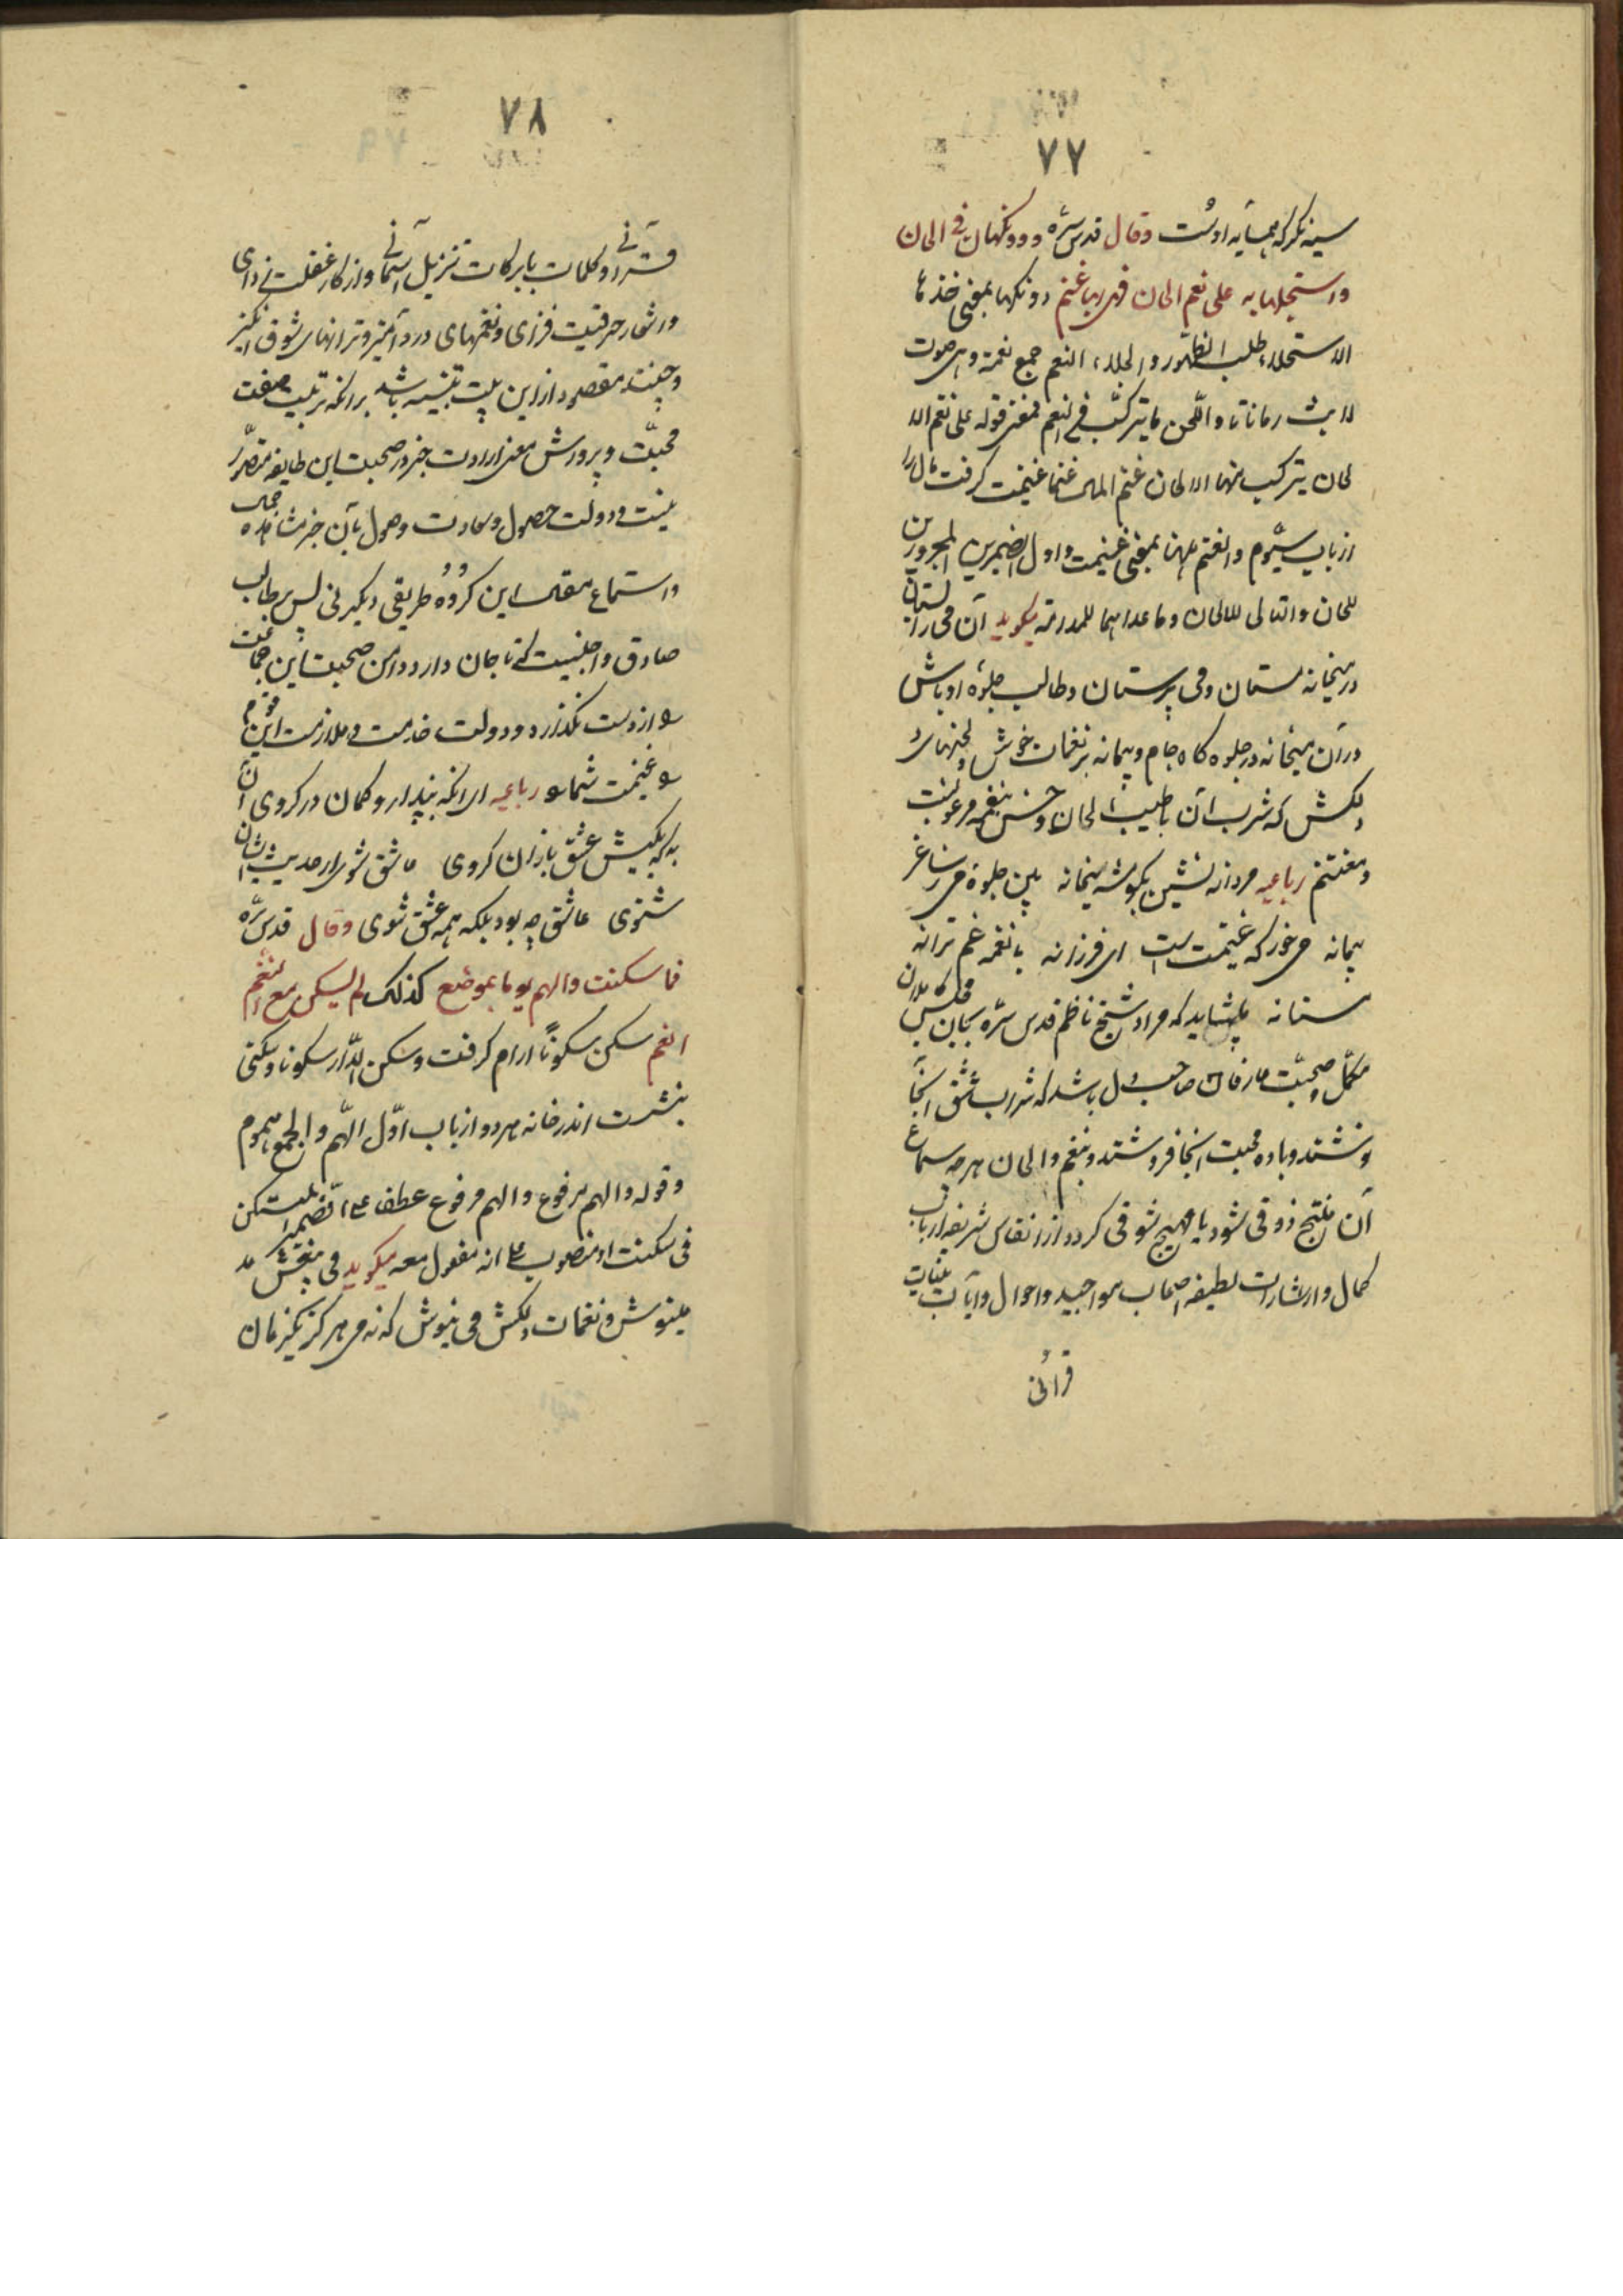 ۷۷
سینه نکر که همسایه اوست وقال قدس سره ودونکها فی الحان
واستجلها به علی نغم الحان فهی بها غنم دونکها بمعنی خذها
الاستجلاء طلب الظهور والجلاء، النغم جمع نغمة وهی صوت
لابث زمانا تا واللحن ما یترکب فی النغم فمعنی قوله علی نغم الا
لحان یترکب منها الالحان غنم المال غنما غنیمت کرفت مال را
از باب سیوم والغنم ههنا بمعنی غنیمت واول الضمیرین المجرورین
للحان والثانی للالحان وما عداهما للمدامة میکوید آن می را بستان
در میخانه مستان ومی پرستان وطالب جلوه او باش
در آن میخانه در جلوه کاه جام وپیمانه بر نغمات خوش ولحنهای د
لکش که شرب آن با طیب الحان وحسن نغم مرغوبست
ومغتنم رباعیه مردانه نشین بکوشه میخانه بین جلوه می ز ساغر
پیمانه می خور که غنیمت است ای فرزانه با نغمه غم ترانه
مستانه شاید که مراد شیخ ناظم قدس سره بحان مجلس کاملان
مکمل وصحبت عارفان صاحب دل باشد که شراب عشق آنجا
نوشند وباده محبت آنجا فروشند وبنغم والحان هر چه سماع
آن منتج ذوقی شود یا مهیج شوقی کردد از انفاس شریفه ارباب
کمال واشارات لطیفه اصحاب مواجید واحوال وآیات بینات
قرآنی
۷۸
قرآنی وکلمات با برکات تنزیل آسمانی واذکار غفلت زدای
واشعار حرقت فزای ونغمهای درد آمیز وترانهای شوق انکیز
وحینئذ مقصود از این بیت تنبیه باشد برانکه تربیت صفت
محبت وپرورش معنی ارادت جز در صحبت این طایفه متصور
نیست ودولت حصول وسعادت وصول بآن جز مشاهده جمال
واستماع مقال این کروه طریقی دیکر نی پس طالب
صادق واجبست که تا جان دارد دامن صحبت این جماعت
را از دست نکذارد ودولت خدمت وملازمت این قوم
را غنیمت شمارد رباعیه ای انکه بپندار وکمان در کروی آن
به که بکیش عشقبازان کروی عاشق شوی ار حدیث ایشان
شنوی عاشق چه بود بلکه همه عشق شوی وقال قدس سره
فما سکنت والهم یوما بموضع کذلک لم یسکن مع النغم
الغم سکن سکونا ارام کرفت وسکن الدار سکونا وسکنی
بنشست اندر خانه هر دو از باب اول الهم والجمع هموم
وقوله والهم مرفوع والهم مرفوع عطف علی الضمیر المستکن
فی سکنت او منصوب علی انه مفعول معه میکوید می بیغش
مینوش ونغمات دلکش می نیوش که نه می هرکز یکزمان